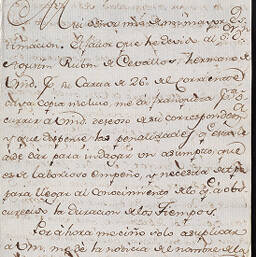 Mui Señor mio de mi maior Es
timacion. El favor que he devido al Sr
Joaquin Rubin de Cevallos, hermano de
Vmd. y su Carta de 26. del Corriente
cuya copia incluio, me da franqueza pa a
currir a Vmd. deseoso de su correspondencia
y que dispense las penalidades, q esta
de dar para indagar un asumpto que
es de laborioso empeño, y necesita de
para llegar al Conocimiento de lo q a obs
curecido la duracion de los tiempos.
Por ahora me ciño solo a suplicar
a Vm. me de la noticia del nombre de la